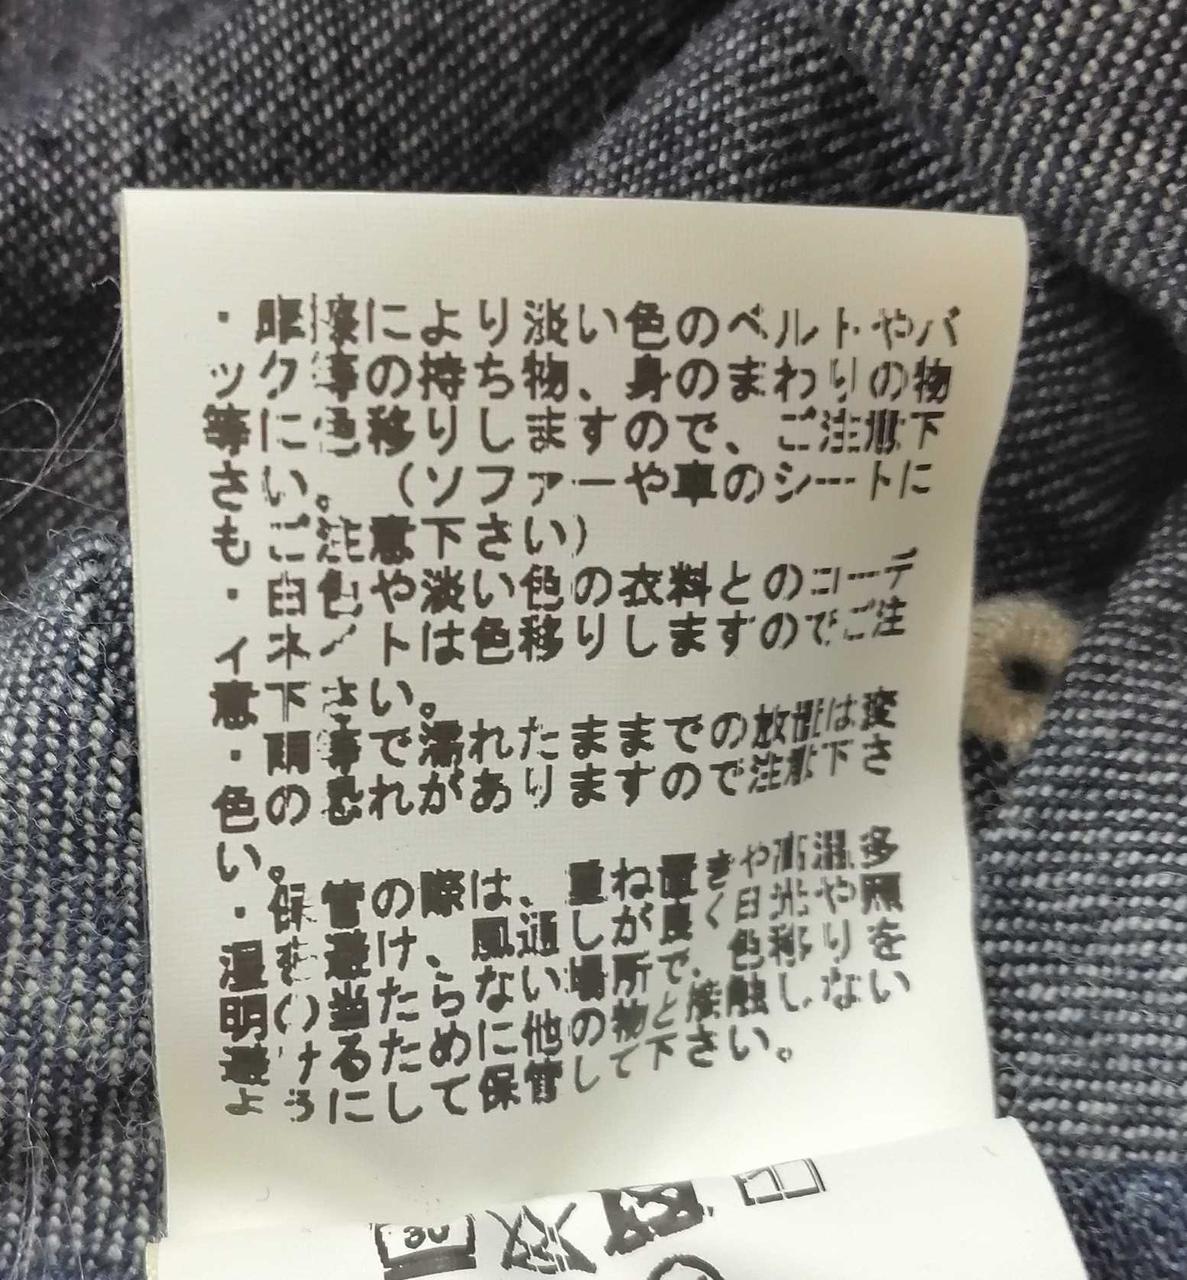 ・摩擦により淡い色のベルトやバ
ック等の持ち物、身のまわりの物
等に色移りしますので、ご注意下
さい。（ソファーや車のシートに
もご注意下さい）
・白色や淡い色の衣料とのコーデ
ィネートは色移りしますのでご注
意下さい。
・雨等で濡れたままでの放置は変
色の恐れがありますので注意下さ
い。
・保管の際は、重ね置きや高温多
湿を避け、風通しが良く日光や照
明の当たらない場所で、色移りを
避けるために他の物と接触しない
ように して保管して下さい。
30